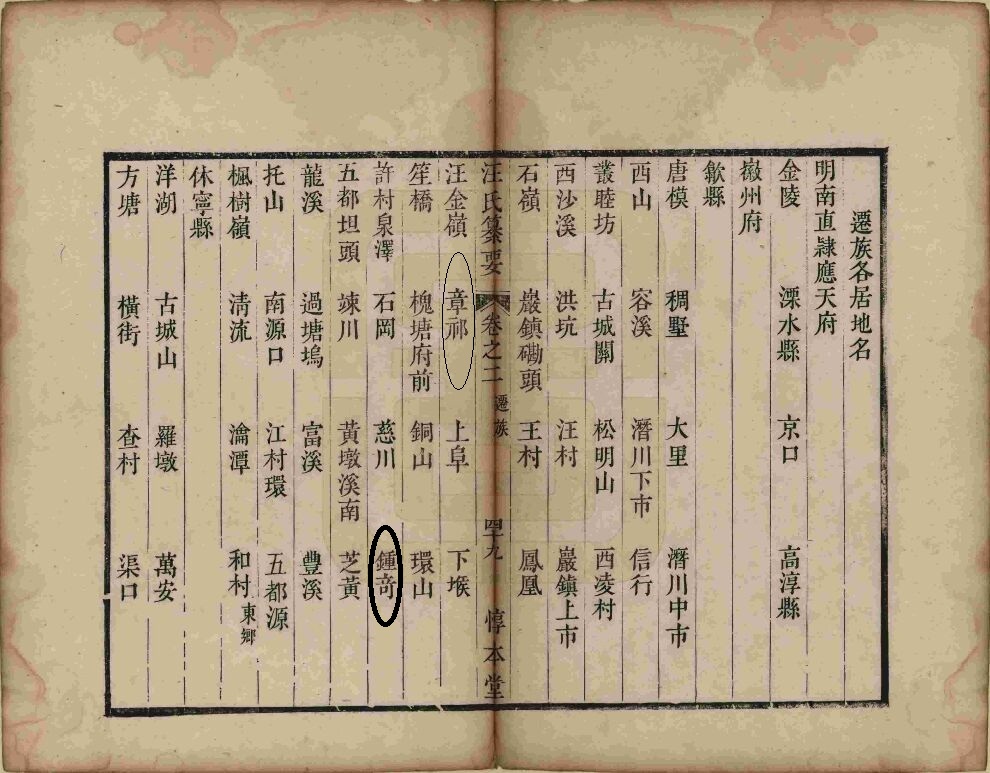 遷族各居地名
明南直隷應天府
金陵 溧水縣 京口 高淳縣
徽州府
歙縣
唐模 稠墅 大里 潛川中市
西山 容溪 潛川下市 信行
叢睦坊 古城關 松明山 西凌村
西沙溪 洪坑 汪村 巖鎮上市
石嶺 巖鎮磡頭 王村 鳳凰
汪氏纂要 卷之二 遷族 四十九 惇本堂
汪金嶺 章祁 上阜 下堠
笙橋 槐塘府前 銅山 環山
許村泉澤 石岡 慈川 鍾竒
五都坦頭 竦川 黃墩溪南 芝黃
龍溪 過塘塢 富溪 豐溪
托山 南源口 江村環 五都源
楓樹嶺 淸流 瀹潭 和村東鄉
休寧縣
洋湖 古城山 羅墩 萬安
方塘 橫街 杳村 渠口